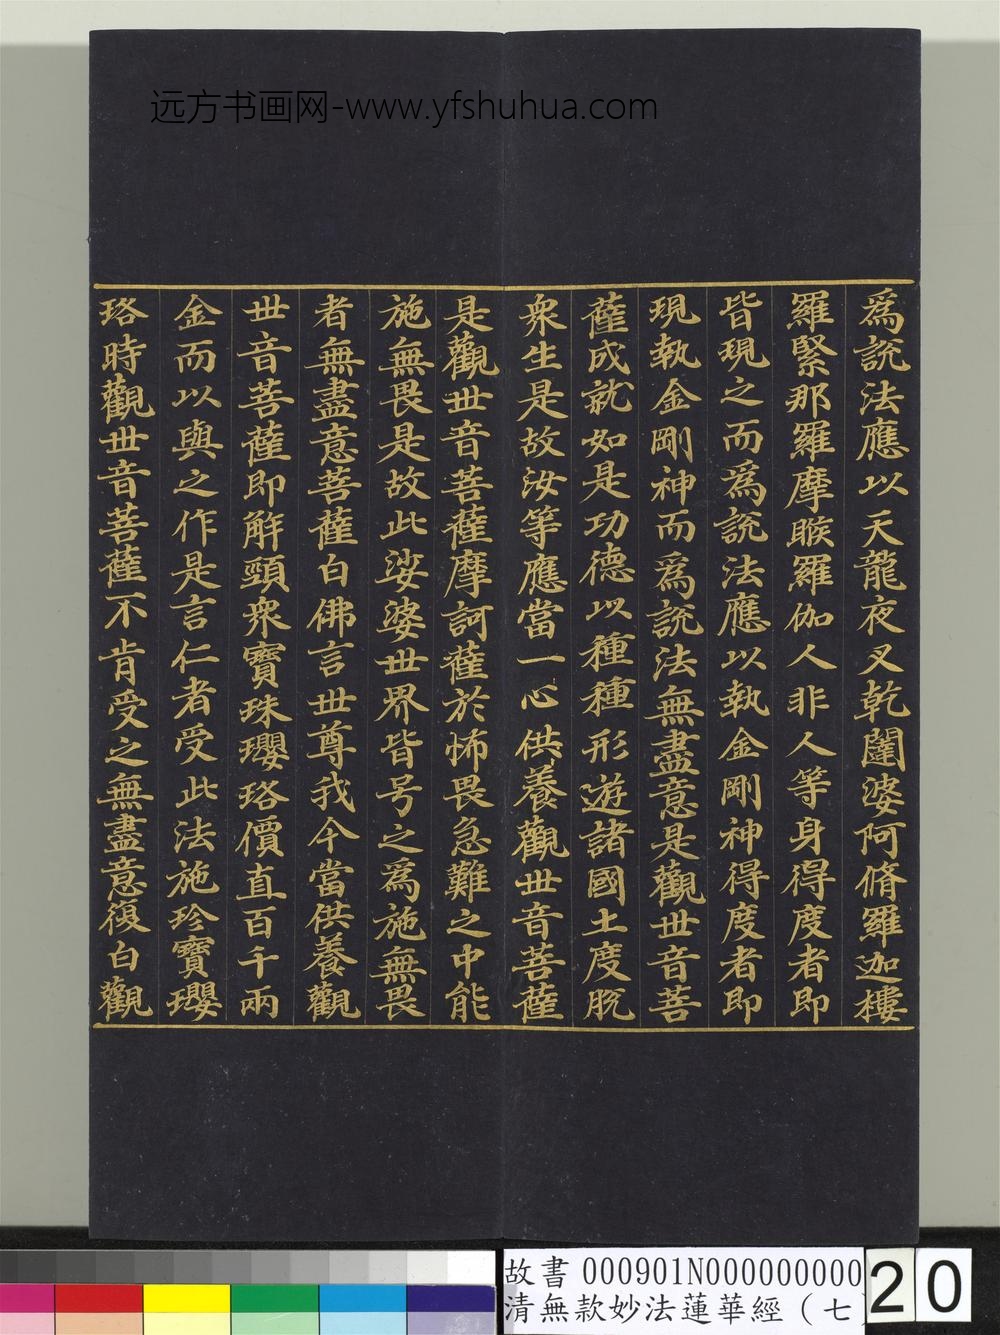 远方书画网-www.yfshuhua.com
為說法應以天龍夜叉乾闥婆阿脩羅迦樓
羅緊那羅摩睺羅伽人非人等身得度者即
皆現之而為說法應以執金剛神得度者即
現執金剛神而為說法無盡意是觀世音菩
薩成就如是功德以種種形遊諸國土度脫
衆生是故汝等應當一心供養觀世音菩薩
是觀世音菩薩摩訶薩於怖畏急難之中能
施無畏是故此娑婆世界皆号之為施無畏
者無盡意菩薩白佛言世尊我今當供養觀
世音菩薩即解頸衆寶珠瓔珞價直百千兩
金而以與之作是言仁者受此法施珍寶瓔
珞時觀世音菩薩不肯受之無盡意復白觀
故書 000901N000000000
清無款妙法蓮華經（七）
20